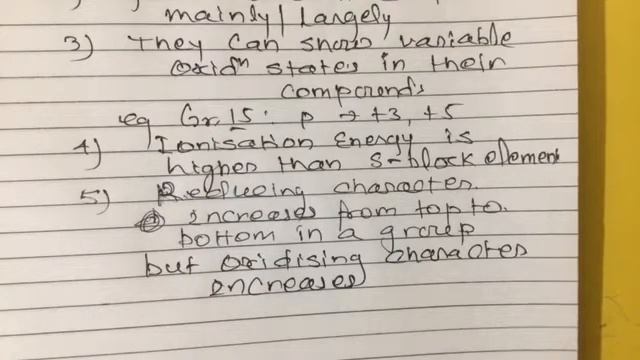 mainly/Largely
3) They can show variable
oxidⁿ states in their
compounds
eg Gr.15: P → +3, +5
4) Ionisation Energy is
higher than S-block element
5) Reducing character
increases from top to
bottom in a group
but oxidising character
increases